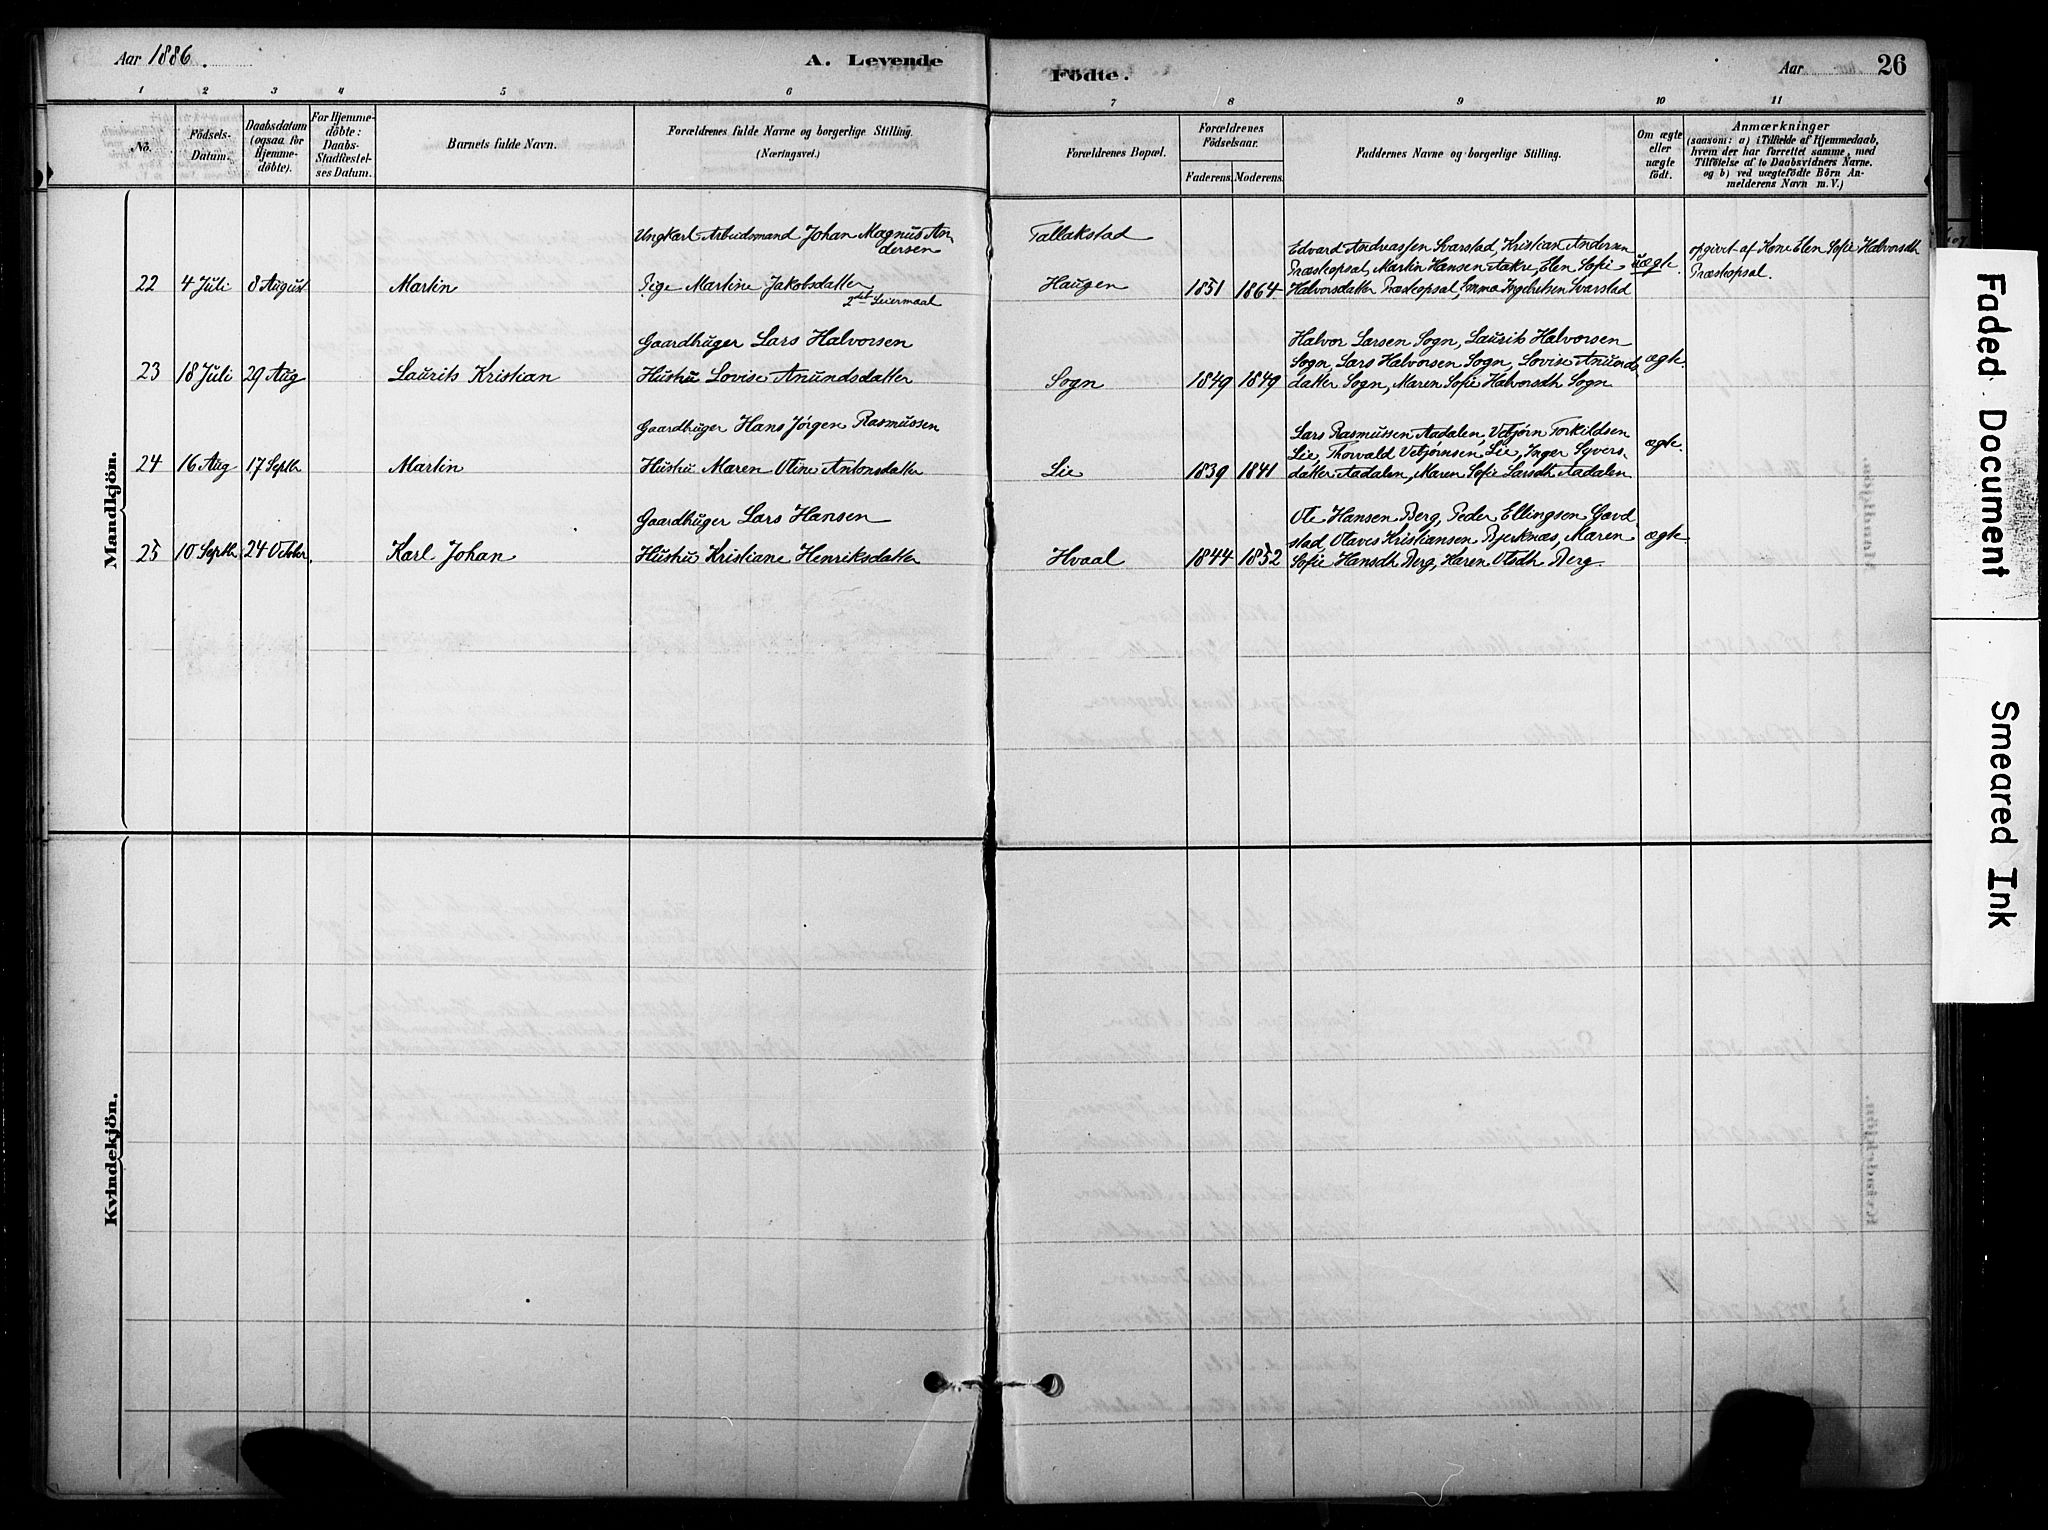 Aar 1886.
A. Levende
Födte.
Aar
26
1 2 3 4 5 6 7 8 9 10 11
No.
Födsels-
Datum.
Daabsdatum
(ogsaa for
Hjemme-
döbte).
For Hjemme-
döbte:
Daabs-
Stadfestel-
ses Datum.
Barnets fulde Navn.
Forældrenes fulde Navne og borgerlige Stilling.
(Næringsvei.)
Forældrenes Bopæl.
Forældrenes
Födselsaar.
Faderens. Moderens.
Faddernes Navne og borgerlige Stilling.
Om ægte
eller
uægte
födt.
Anmærkninger
(saasom: a) i Tilfælde af Hjemmedaab,
hvem der har forrettet samme, med
Tilföielse af to Daabsvidners Navne.
og b) ved uægtefödte Börn An-
melderens Navn m. V.)
Mandkjön.
Ungkarl Arbeidsmand Johan Magnus An-
dersen
Tallakstad
Edvard Andreassen Svarstad, Kristian Andersen
Præstopsal, Martin Hansen Aakre, Elen Sofie
uægte.
opgivet af Kone Elen Sofie Halvorsdtr
Præstopsal.
22 4 Juli 8 August Martin Pige Martine Jakobsdatter
2det Leiermaal
Haugen 1851 1864 Halvorsdatter Præstopsal, Emma Ingebretsen Svarstad
Gaardbruger Lars Halvorsen
Halvor Larsen Sogn, Laurits Halvorsen
Sogn, Lars Halvorsen Sogn, Lovise Anunds
ægte.
23 18 Juli 29 Aug Laurits Kristian Hustru Lovise Anundsdatter Sogn 1849 1849 datter Sogn, Maren Sofie Halvorsdtr Sogn
Gaardbruger Hans Jörgen Rasmussen
Lars Rasmussen Aadalen, Vebjørn Torkildsen
Lie, Thorvald Vebjørnsen Lie, Inger Syvers-
ægte.
24 16 Aug 17 Septbr Martin Hustru Maren Oline Antonsdatter Lie 1839 1841 datter Aadalen, Maren Sofie Larsdtr Aadalen
Gaardbruger Lars Hansen
Ole Hansen Berg, Peder Ellingsen Gavd
stad, Olaves Kristiansen Bjerknæs, Maren
ægte.
25 10 Septbr 24 Octobr. Karl Johan Hustru Kristiane Henriksdatter Hvaal 1844 1852 Sofie Hansdtr Berg, Karen Olsdtr Berg
Kvindekjön.
Faded Document
Smeared Ink